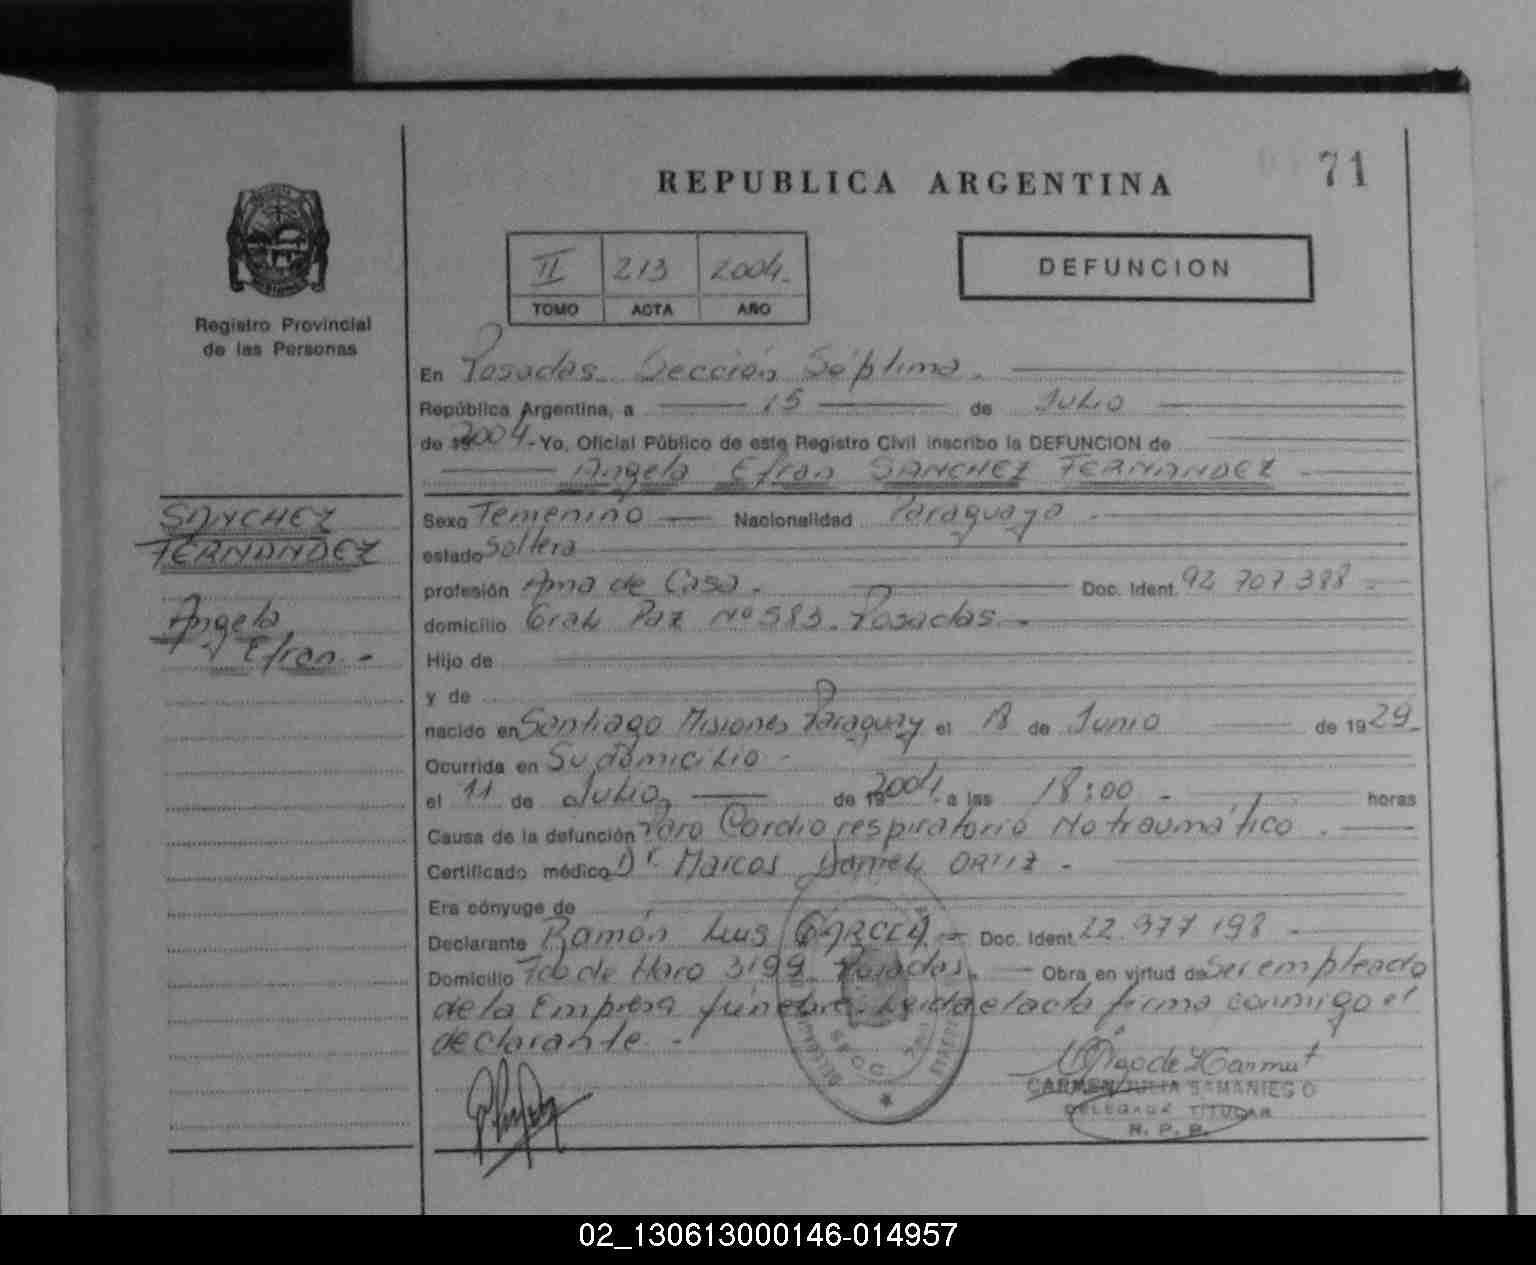 71
REPUBLICA ARGENTINA
II 213 2004.-
TOMO ACTA AÑO
DEFUNCION
Registro Provincial
de las Personas
En Posadas. Sección Séptima.
República Argentina, a 15 de Julio
de 2004.- Yo, Oficial Público de este Registro Civil inscribo la DEFUNCION de
Angela Efran SANCHEZ FERNANDEZ
SANCHEZ
FERNANDEZ
Angela
Efran.-
Sexo Femenino Nacionalidad Paraguaya.-
estado Soltera
profesión Ama de Casa. Doc. Ident. 92 707 388.-
domicilio Gral Paz Nº 583. Posadas.-
Hijo de
y de
nacido en Santiago Misiones Paraguay el 18 de Junio de 1929.-
Ocurrida en Su domicilio -
el 11 de Julio de 2004.- a las 18:00 - horas
Causa de la defunción Paro Cardio respiratorio No traumático.
Certificado médico Dr. Marcos Daniel ORTIZ -
Era cónyuge de
Declarante Ramón Luis GARCIA.- Doc. Ident. 22.977 198 -
Domicilio Fco de Haro 3199. Posadas. Obra en virtud de Ser empleado
de la Empresa fúnebre. Leida el acta firma conmigo el
declarante.-
CARMEN JULIA SAMANIEGO
DELEGADA TITULAR
R. P. P.
02_130613000146-014957